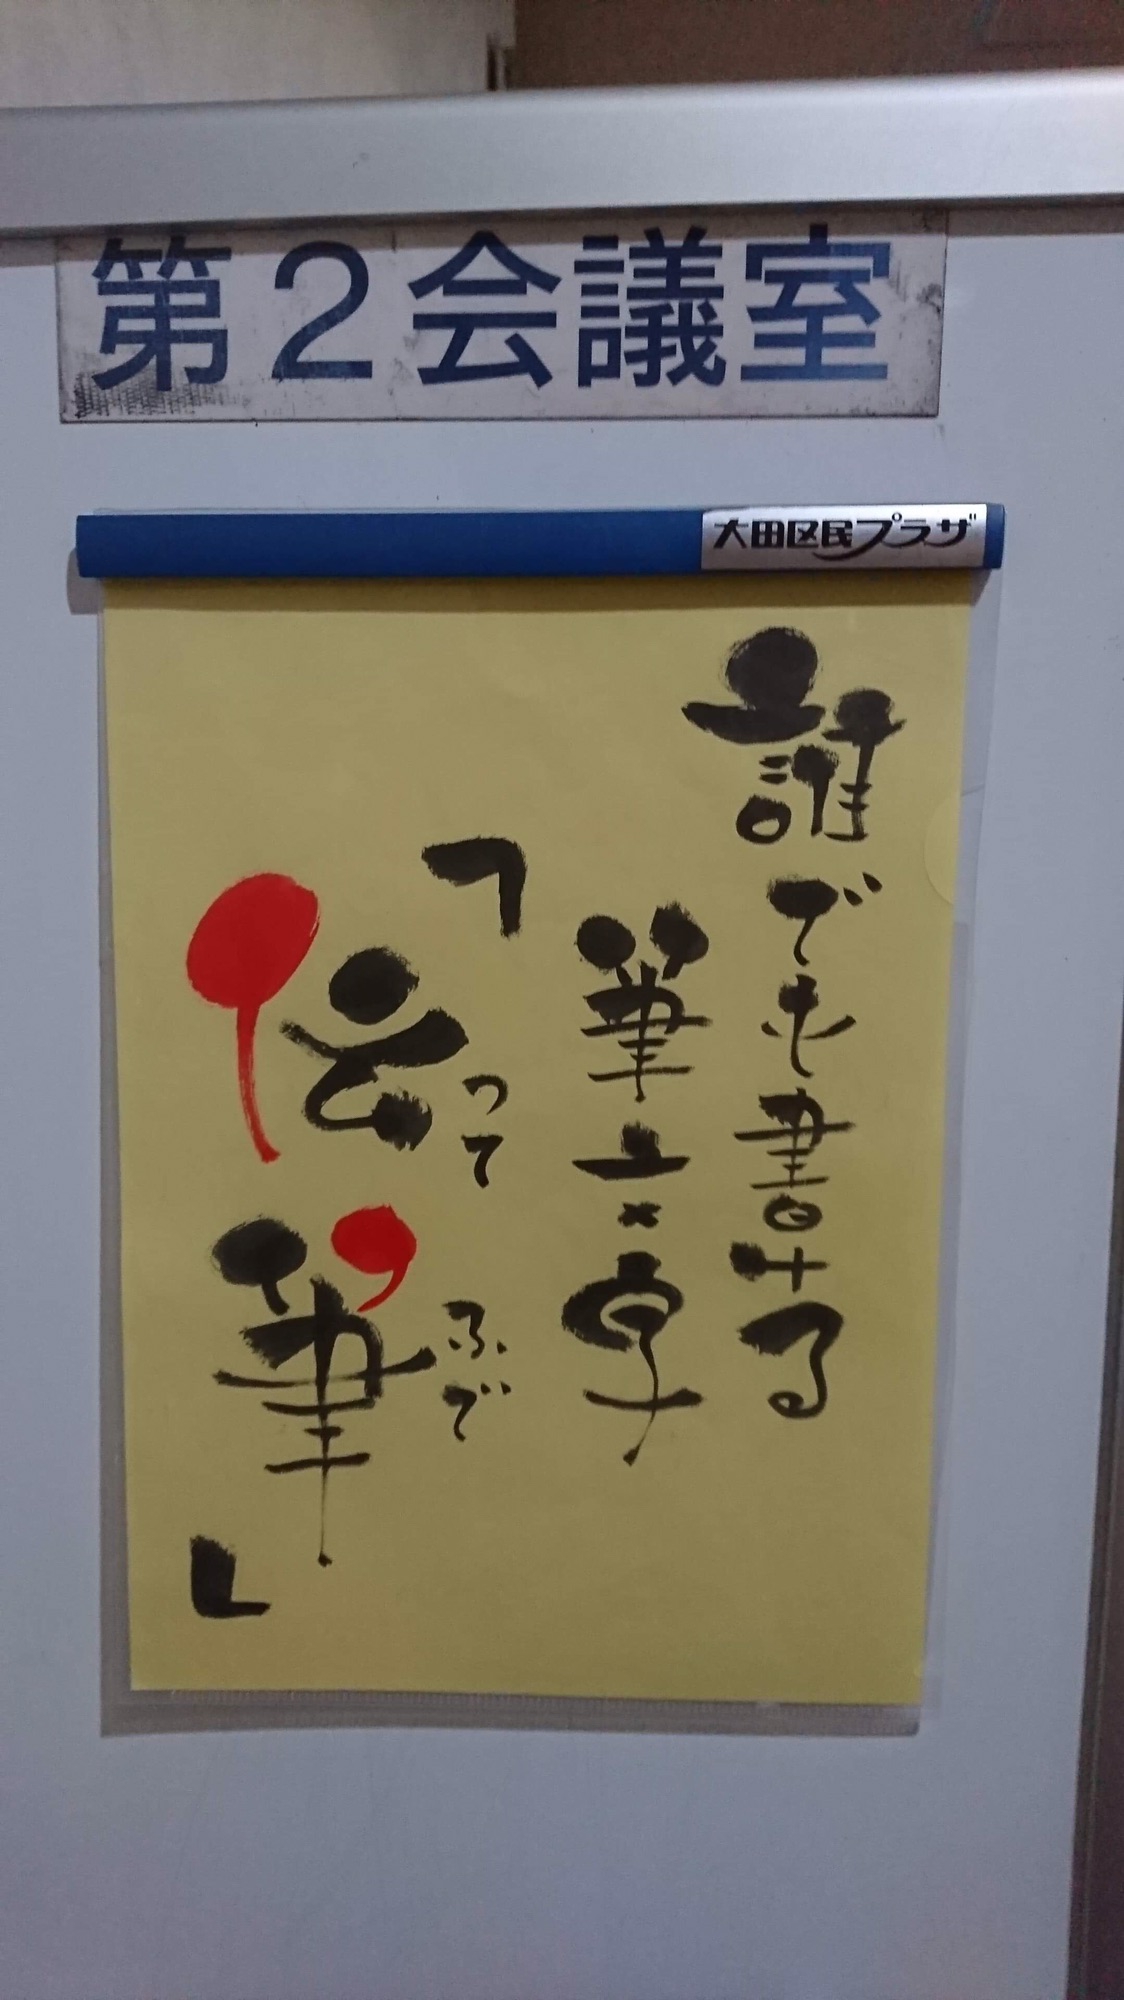 第２会議室
大田区民プラザ
誰でも書ける
筆文字
「伝筆」
つて
ふで